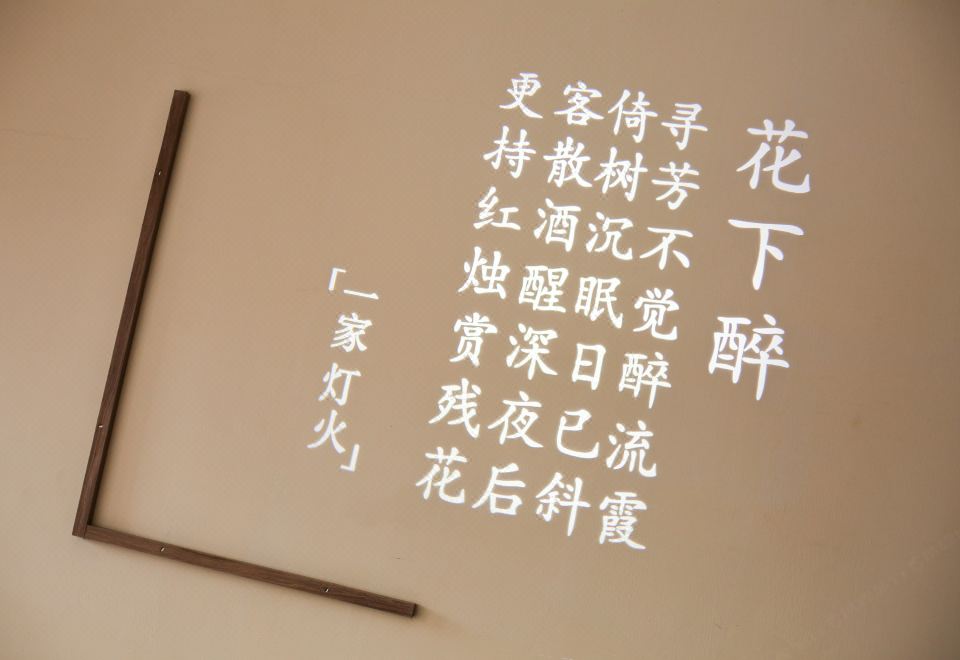 花下醉
寻芳不觉醉流霞
倚树沉眠日已斜
客散酒醒深夜后
更持红烛赏残花
「一家灯火」